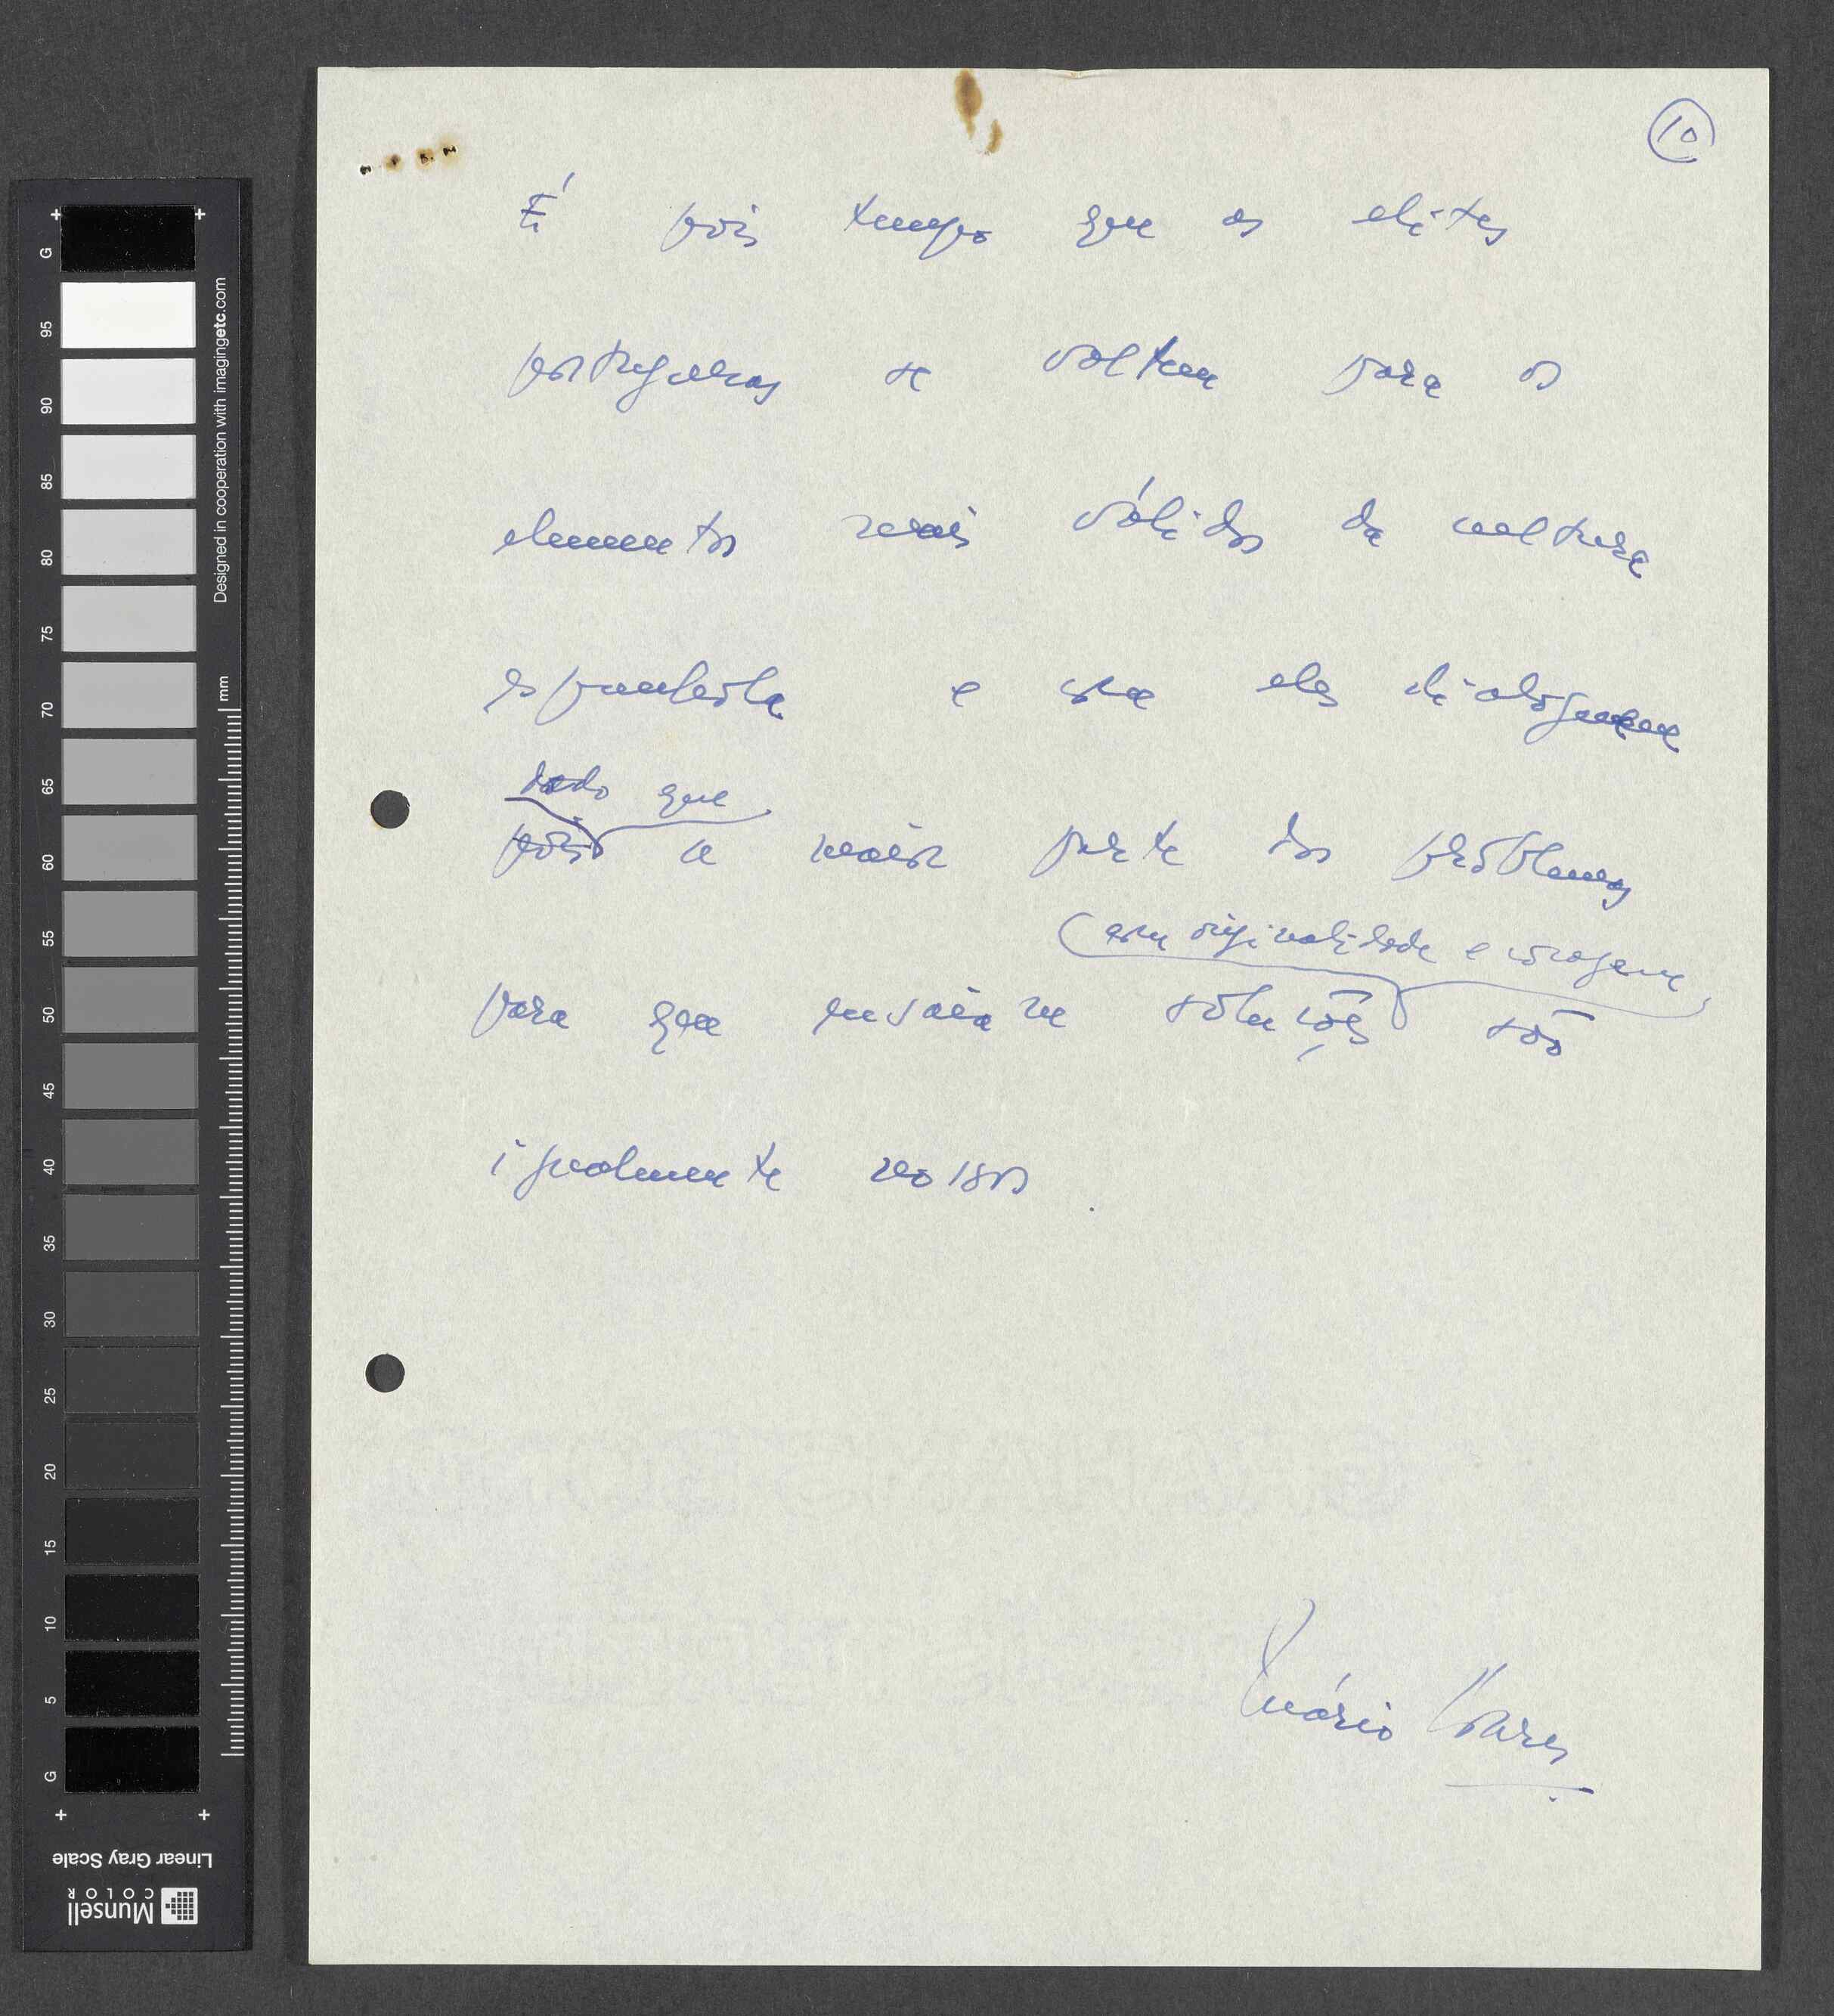 10
É pois tempo que as elites
portuguesas se voltem para os
elementos mais válidos da cultura
espanhola e com eles dialoguem
dado que
pois a maior parte dos problemas
(com originalidade e coragem)
para que ensaiam soluções são
igualmente nossos.
Mário Soares
G
95
90
85
80
75
70
65
60
55
50
45
40
35
30
25
20
15
10
5
G
Designed in cooperation with imagingetc.com
mm
Linear Gray Scale
Munsell
COLOR